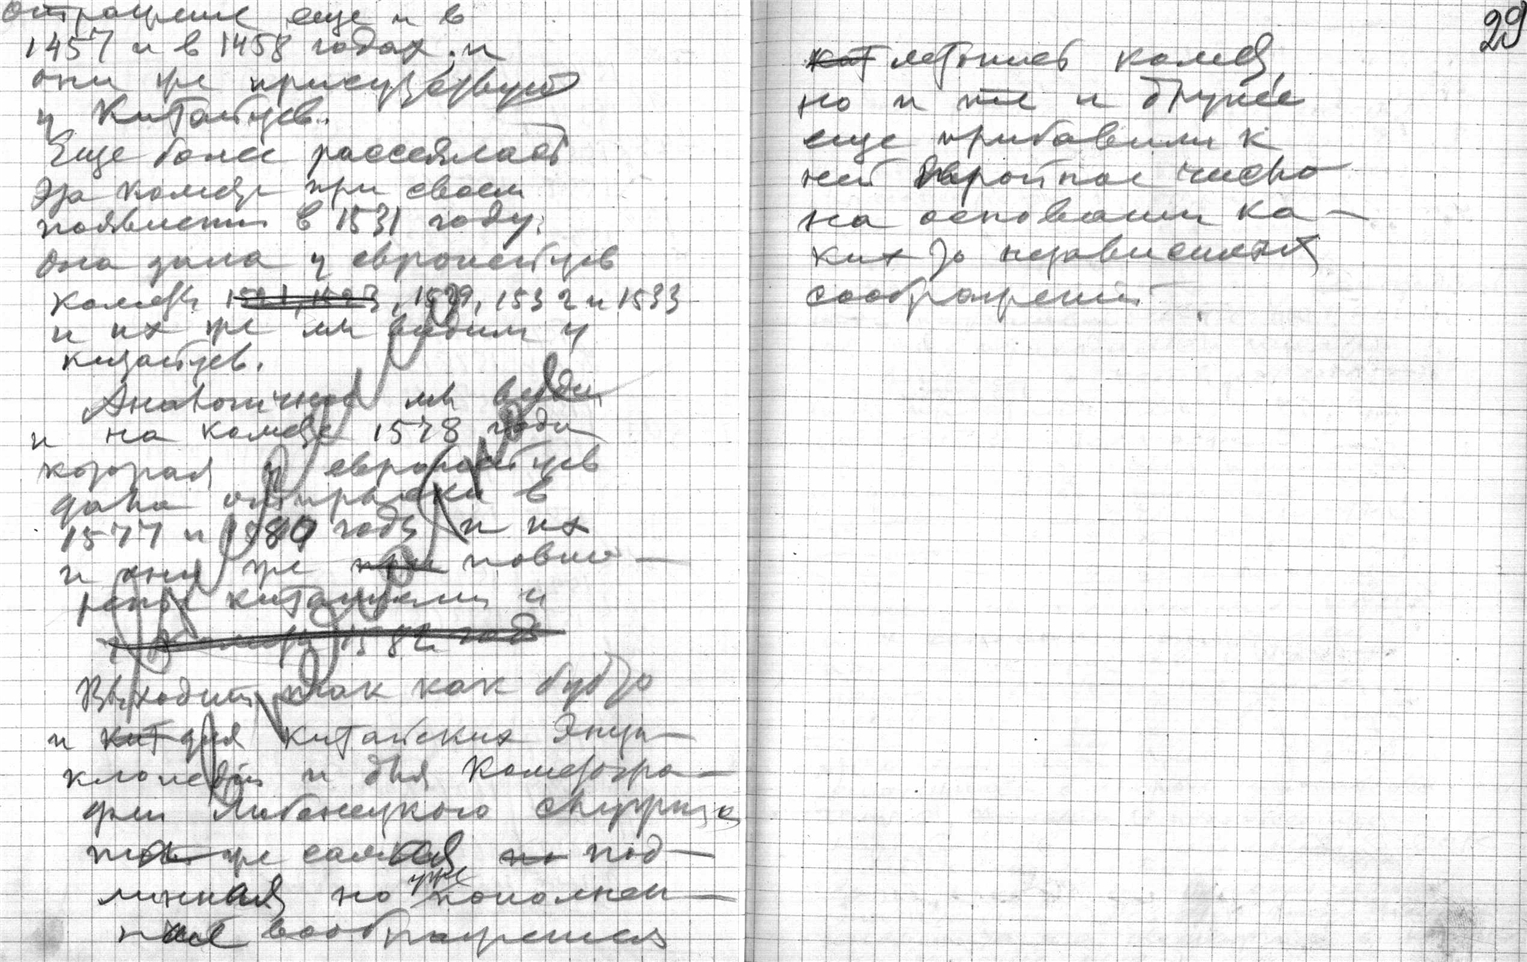 отражение еще и в
1457 и в 1458 годах, и
они же присутствуют
у Китайцев.
Еще более рассеялась
эта комета при своем
появлении в 1531 году.
Она дала у европейцев
кометы 1529, 1532 и 1533
и их же мы видим у
китайцев.
Аналогичное мы видим
и на комете 1578 года
которая у европейцев
дала отпрыски в
1577 и 1580 годы и их
и они же повто-
рены китайцами и
1582 год
Выходит так как будто
и для китайских Энци-
клопедий и для Кометогра-
фии Любенецкого служила
та же самая под-
линная но уже пополнен-
ная воображением
29
летопись комет,
но и те и другие
еще прибавили к
ней тройное число
на основании ка-
ких то независимых
соображений.